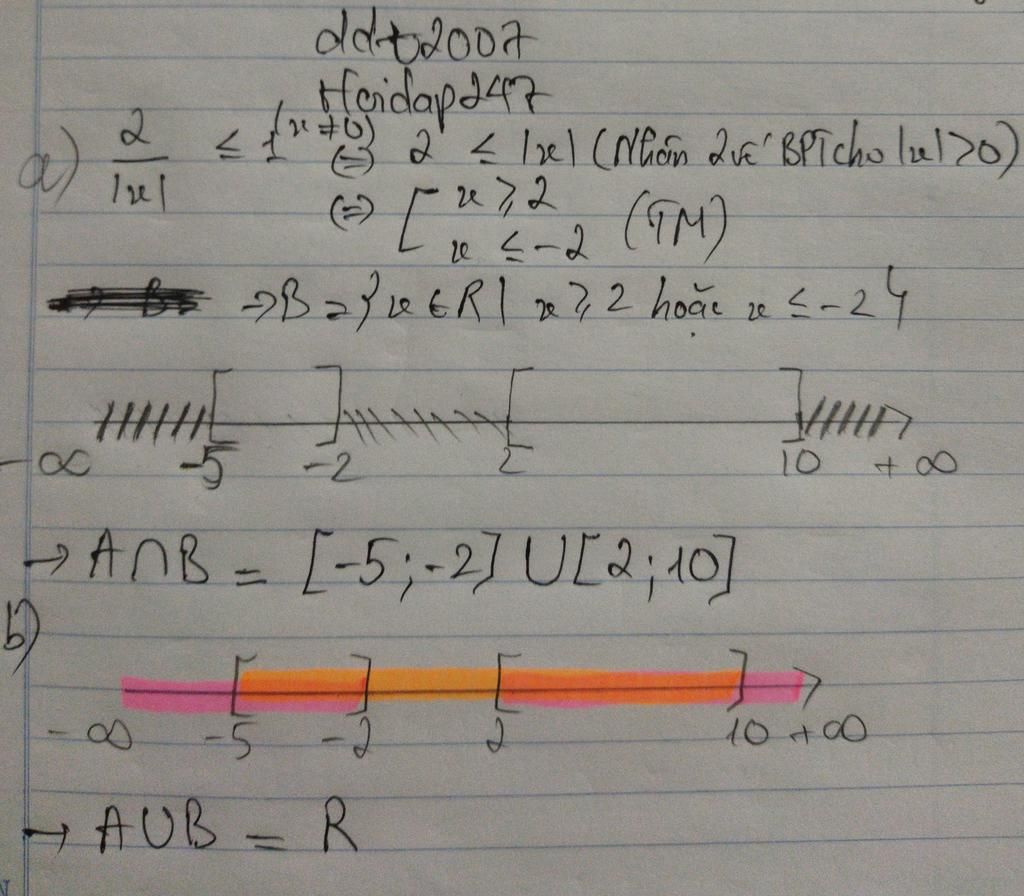 ddt2007
Hoidap247
a) 2/|x| ≤ 1 (x ≠ 0) (=) 2 ≤ |x| (Nhân 2 vế BPT cho |x| > 0)
(=) [ x ≥ 2
x ≤ -2 (TM)
→ B = {x ∈ R | x ≥ 2 hoặc x ≤ -2}
-∞ -5 -2 2 10 +∞
→ A∩B = [-5;-2] ∪ [2;10]
b)
-∞ -5 -2 2 10 +∞
→ A∪B = R